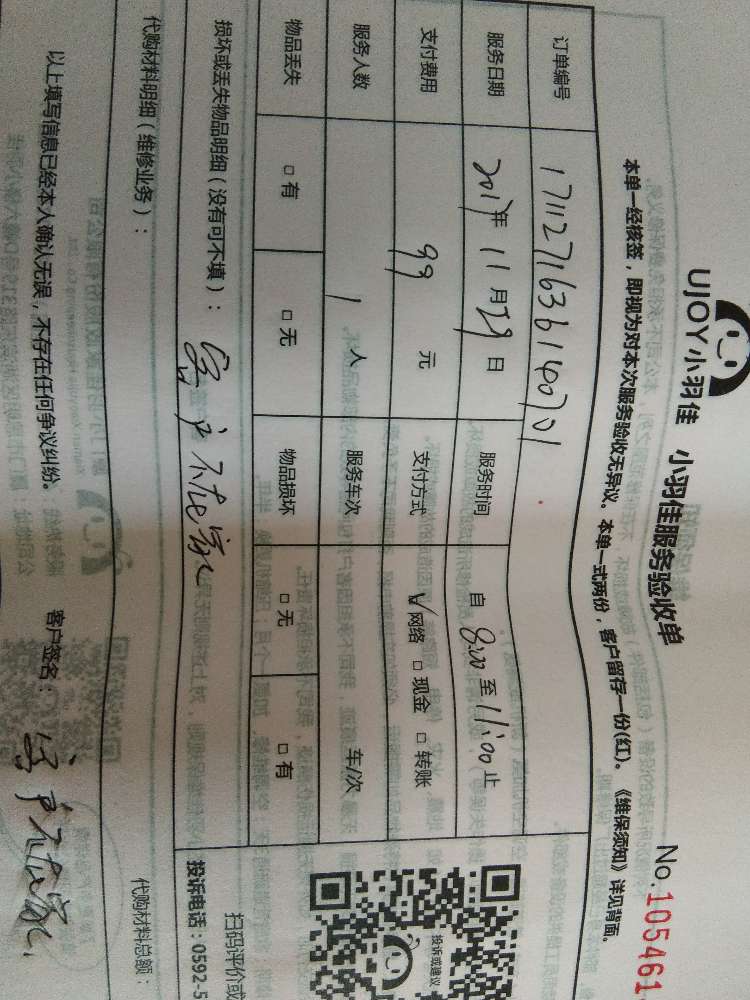 UJOY小羽佳 小羽佳服务验收单 No.105461
本单一经核签，即视为对本次服务验收无异议。本单一式两份，客户留存一份(红)。《维保须知》详见背面。
订单编号 1711271636140701
服务日期 2017年11月29日 服务时间 自 8:00 至 11:00 止
支付费用 99 元 支付方式 √网络 □现金 □转账
服务人数 1 人 服务车次 车/次
物品丢失 □有 □无 物品损坏 □无 □有
损坏或丢失物品明细（没有可不填）：客户不在家
代购材料明细（维修业务）： 代购材料总额：
以上填写信息已经本人确认无误，不存在任何争议纠纷。 客户签名：客户不在家.
投诉或建议
扫码评价或
投诉电话：0592-5